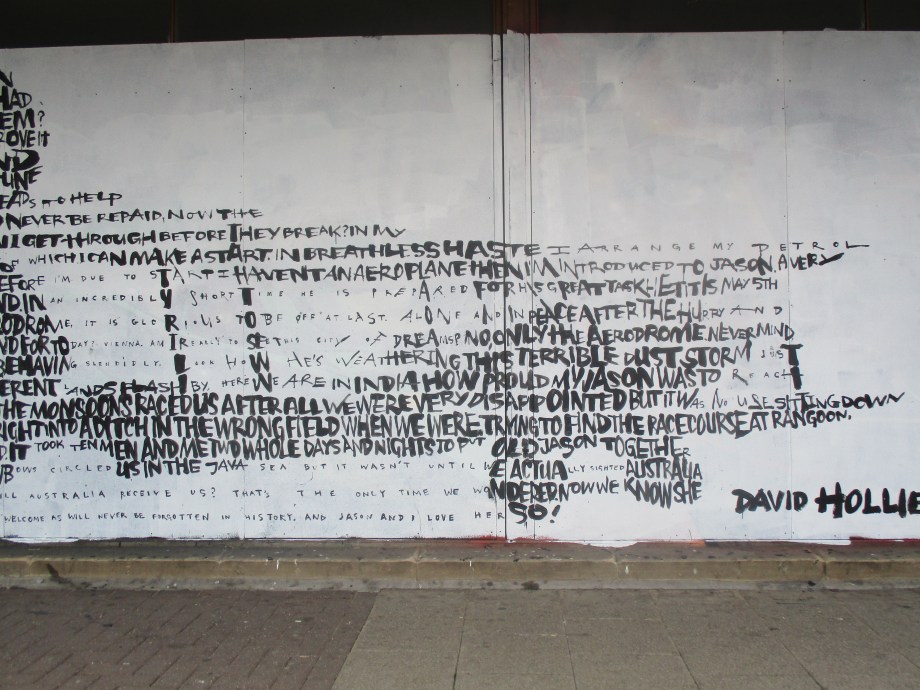 N
HAD
EM?
ROVE IT
ND
TUNE
EADS TO HELP
NEVER BE REPAID, NOW THE
I GET THROUGH BEFORE THEY BREAK? IN MY
WHICH I CAN MAKE A START. IN BREATHLESS HASTE I ARRANGE MY PETROL
EFORE I'M DUE TO START I HAVENT AN AEROPLANE THEN I'M INTRODUCED TO JASON, A VERY
ND IN AN INCREDIBLY SHORT TIME HE IS PREPARED FOR HIS GREAT TASK. HE IT IS MAY 5TH
RODROME, IT IS GLORIOUS TO BE OFF AT LAST. ALONE AND IN PEACE AFTER THE HURRY AND
ND FOR TODAY? VIENNA. AM I REALLY TO SEE THIS CITY OF DREAMS? NO ONLY THE AERODROME. NEVER MIND
BEHAVING SPLENDIDLY. LOOK HOW HE'S WEATHERING THIS TERRIBLE DUST STORM JUST
ERENT LANDS FLASH BY, HERE WE ARE IN INDIA HOW PROUD MY JASON WAS TO REACH IT
THE MONSOONS RACED US AFTER ALL WE WERE VERY DISAPPOINTED BUT IT WAS NO USE SITTING DOWN
RIGHT INTO A DITCH IN THE WRONG FIELD WHEN WE WERE TRYING TO FIND THE RACECOURSE AT RANGOON.
D IT TOOK TEN MEN AND ME TWO WHOLE DAYS AND NIGHTS TO PUT OLD JASON TOGETHER
BOWS CIRCLED US IN THE JAVA SEA BUT IT WASN'T UNTIL WE ACTUALLY SIGHTED AUSTRALIA
ILL AUSTRALIA RECEIVE US? THAT'S THE ONLY TIME WE WONDERED. NOW WE KNOW SHE
WELCOME AS WILL NEVER BE FORGOTTEN IN HISTORY. AND JASON AND I LOVE HER SO!
DAVID HOLLIE